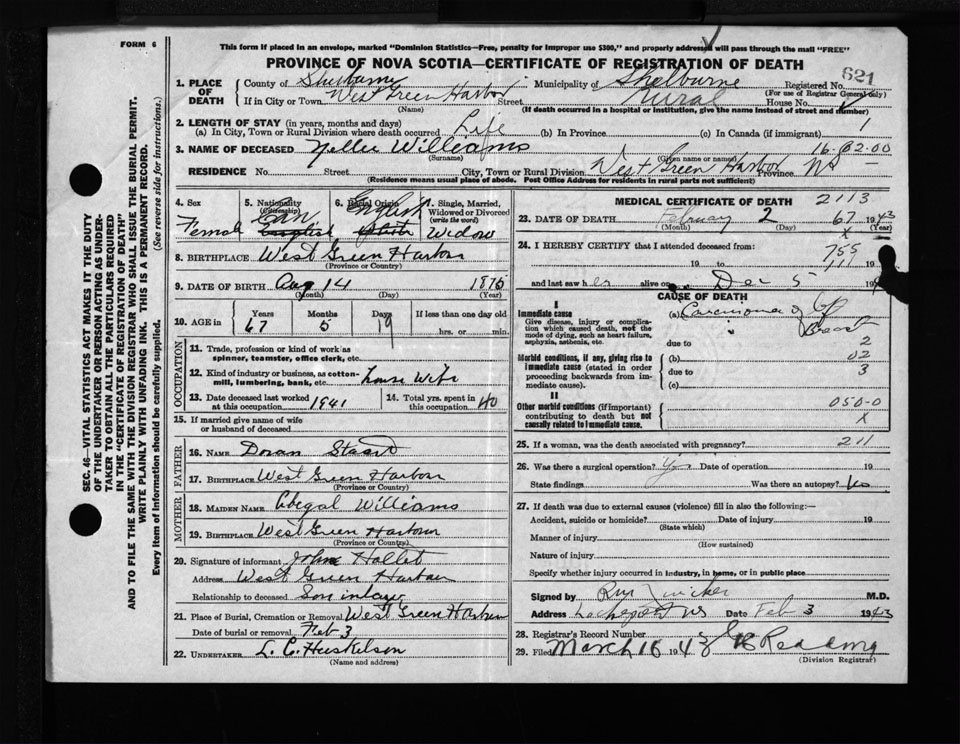 FORM 6
This form if placed in an envelope, marked "Dominion Statistics—Free, penalty for improper use $300," and properly addressed will pass through the mail "FREE"
PROVINCE OF NOVA SCOTIA—CERTIFICATE OF REGISTRATION OF DEATH
621
1. PLACE OF DEATH County of Shelburne Municipality of Shelburne Registered No.
(For use of Registrar General only)
If in City or Town West Green Harbor Street Rural House No.
(Name) (If death occurred in a hospital or institution, give the name instead of street and number)
2. LENGTH OF STAY (in years, months and days)
(a) In City, Town or Rural Division where death occurred Life (b) In Province (c) In Canada (if immigrant) 1
3. NAME OF DECEASED Nellie Williams 16-02-00
(Surname) (Given name or names)
RESIDENCE No. Street City, Town or Rural Division West Green Harbor Province NS
(Residence means usual place of abode. Post Office Address for residents in rural parts not sufficient)
4. Sex Female
5. Nationality (Citizenship) Can English
6. Racial Origin English
7. Single, Married, Widowed or Divorced (write the word) Widow
8. BIRTHPLACE West Green Harbor
(Province or Country)
9. DATE OF BIRTH Aug 14 1875
(Month) (Day) (Year)
10. AGE in Years Months Days If less than one day old
67 5 19 hrs. or min.
OCCUPATION
11. Trade, profession or kind of work as spinner, teamster, office clerk, etc.
12. Kind of industry or business, as cotton-mill, lumbering, bank, etc. House Wife
13. Date deceased last worked at this occupation 1941 14. Total yrs. spent in this occupation 40
15. If married give name of wife or husband of deceased
FATHER
16. NAME Doran
17. BIRTHPLACE West Green Harbor
(Province or Country)
MOTHER
18. MAIDEN NAME Abegal Williams
19. BIRTHPLACE West Green Harbor
(Province or Country)
20. Signature of informant John Hallet
Address West Green Harbor
Relationship to deceased Son inlaw
21. Place of Burial, Cremation or Removal West Green Harbor
Date of burial or removal Feb 3
22. UNDERTAKER L. C. Huskilson
(Name and address)
MEDICAL CERTIFICATE OF DEATH 2113
23. DATE OF DEATH February 2 67 1943
(Month) (Day) (Year)
X
24. I HEREBY CERTIFY that I attended deceased from:
755
19 to 111 19
and last saw her alive on Dec 5 19
CAUSE OF DEATH
I
Immediate cause
Give disease, injury or complication which caused death, not the mode of dying, such as heart failure, asphyxia, asthenia, etc.
(a) Carcinoma of Breast
due to 2
Morbid conditions, if any, giving rise to immediate cause (stated in order proceeding backwards from immediate cause).
(b) 02
due to 3
(c)
II
Other morbid conditions (if important) contributing to death but not causally related to immediate cause.
050-0
X
25. If a woman, was the death associated with pregnancy? 211
26. Was there a surgical operation? Yes Date of operation 19
State findings Was there an autopsy? No
27. If death was due to external causes (violence) fill in also the following:—
Accident, suicide or homicide? Date of injury 19
(State which)
Manner of injury
(How sustained)
Nature of injury
Specify whether injury occurred in industry, in home, or in public place
Signed by M.D.
Address Lockeport NS Date Feb 3 1943
28. Registrar's Record Number 8
29. Filed March 16 1943
(Division Registrar)
SEC. 46—VITAL STATISTICS ACT MAKES IT THE DUTY OF THE UNDERTAKER OR PERSON ACTING AS UNDERTAKER TO OBTAIN ALL THE PARTICULARS REQUIRED IN THE "CERTIFICATE OF REGISTRATION OF DEATH"
AND TO FILE THE SAME WITH THE DIVISION REGISTRAR WHO SHALL ISSUE THE BURIAL PERMIT.
WRITE PLAINLY WITH UNFADING INK. THIS IS A PERMANENT RECORD.
Every item of information should be carefully supplied. (See reverse side for instructions.)